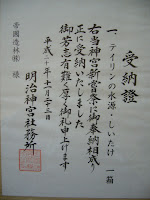 受納證
一、テイリンの水源・しいたけ 一箱
右当神宮新嘗祭に御奉納相成り
正に受納いたしました
御芳志有難く厚く御礼申上げます
平成二十年十一月二十三日
明治神宮社務所
帝國造林(株) 様